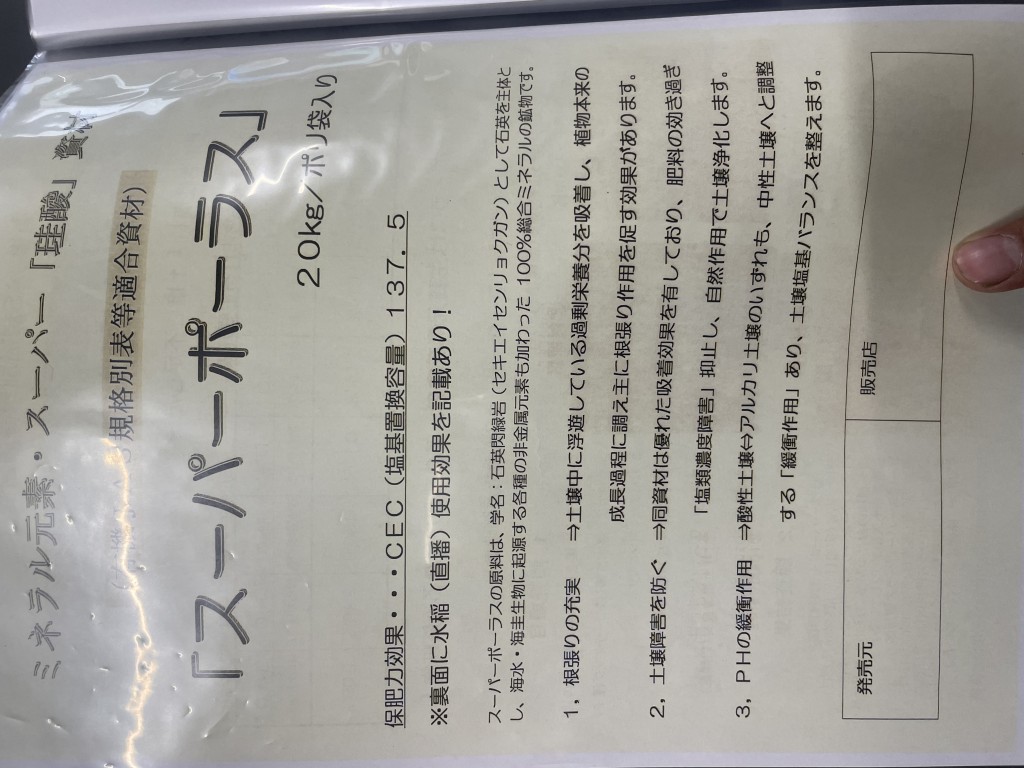 ミネラル元素・スーパー「珪酸」資材
規格別表等適合資材）
「スーパーポーラス」
２０ｋｇ／ポリ袋入り
保肥力効果・・・ＣＥＣ（塩基置換容量）１３７．５
※裏面に水稲（直播）使用効果を記載あり！
スーパーポーラスの原料は、学名：石英閃緑岩（セキエイセンリョクガン）として石英を主体と
し、海水・海主生物に起源する各種の非金属元素も加わった 100％総合ミネラルの鉱物です。
１，根張りの充実　⇒土壌中に浮遊している過剰栄養分を吸着し、植物本来の
成長過程に調え主に根張り作用を促す効果があります。
２，土壌障害を防ぐ　⇒同資材は優れた吸着効果を有しており、肥料の効き過ぎ
「塩類濃度障害」抑止し、自然作用で土壌浄化します。
３，ＰＨの緩衝作用　⇒酸性土壌⇔アルカリ土壌のいずれも、中性土壌へと調整
する「緩衝作用」あり、土壌塩基バランスを整えます。
発売元
販売店